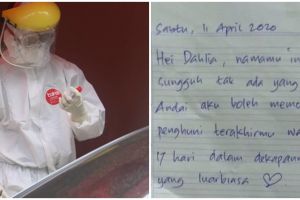 Sabtu, 11 April 2020
Hei Dahlia, namamu in
sungguh tak ada yang
Andai aku boleh mem
penghuni terakhirmu wa
17 hari dalam dekapan
yang luarbiasa